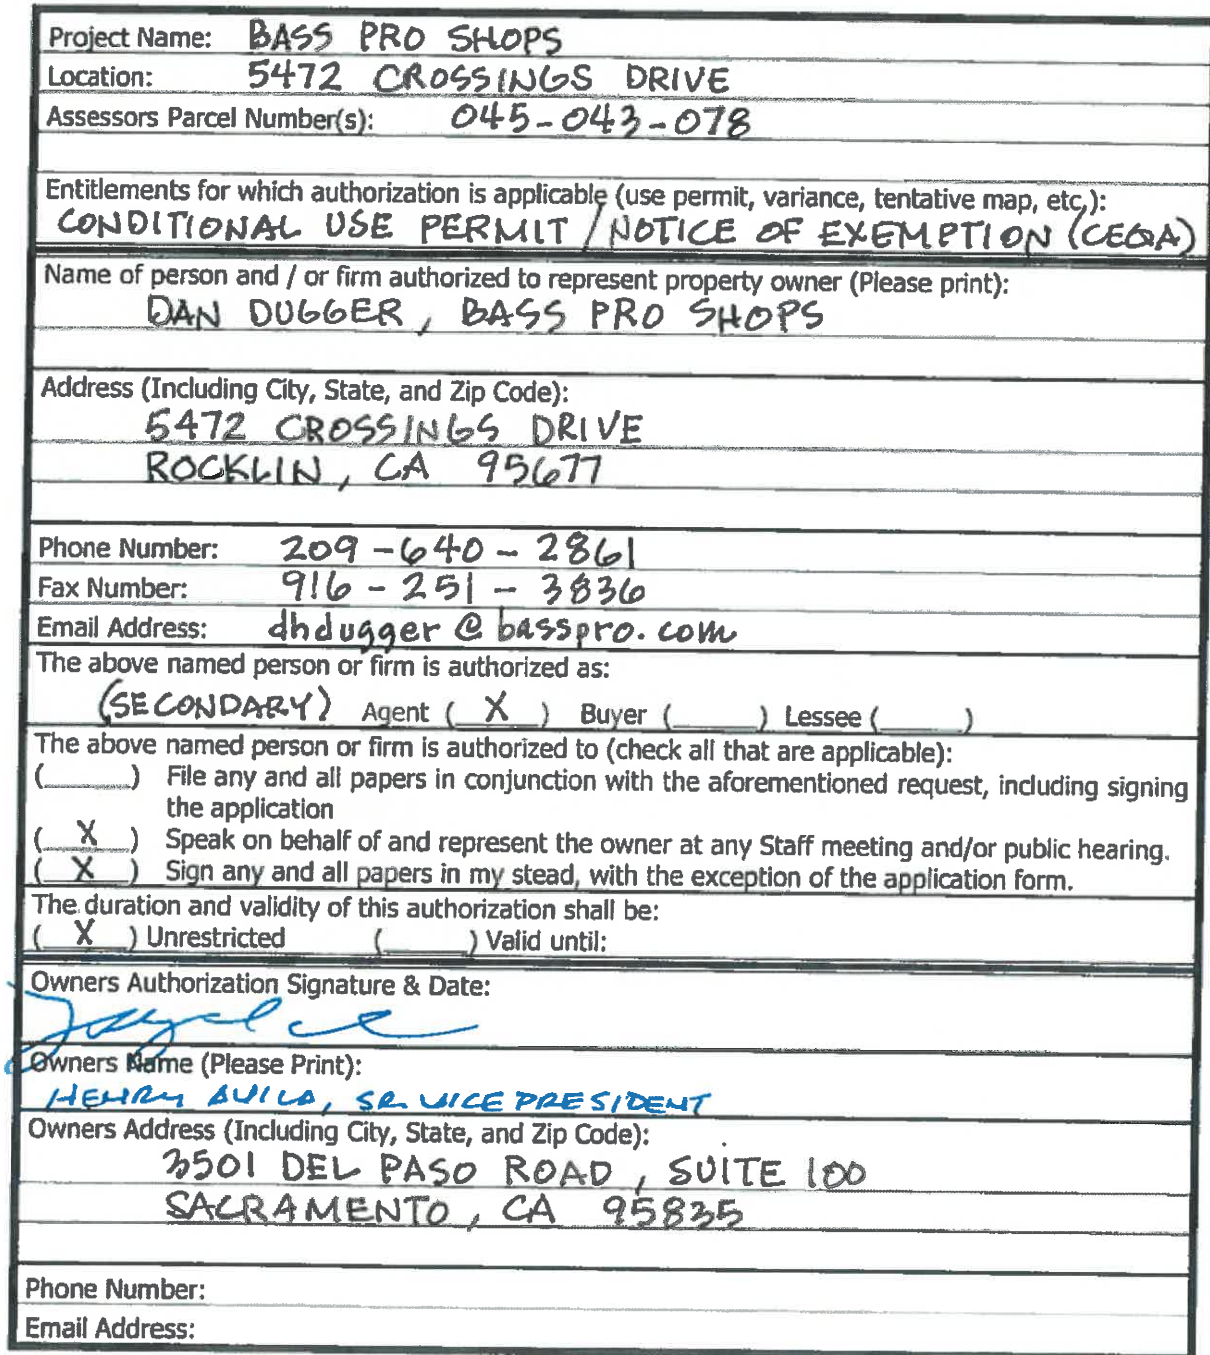 Project Name: BASS PRO SHOPS
Location: 5472 CROSSINGS DRIVE
Assessors Parcel Number(s): 045-043-078
Entitlements for which authorization is applicable (use permit, variance, tentative map, etc.):
CONDITIONAL USE PERMIT / NOTICE OF EXEMPTION (CEQA)
Name of person and / or firm authorized to represent property owner (Please print):
DAN DUGGER, BASS PRO SHOPS
Address (Including City, State, and Zip Code):
5472 CROSSINGS DRIVE
ROCKLIN, CA 95677
Phone Number: 209-640-2861
Fax Number: 916-251-3836
Email Address: dhdugger@basspro.com
The above named person or firm is authorized as:
(SECONDARY) Agent ( X ) Buyer (_____) Lessee (_____)
The above named person or firm is authorized to (check all that are applicable):
(_____) File any and all papers in conjunction with the aforementioned request, including signing
the application
( X ) Speak on behalf of and represent the owner at any Staff meeting and/or public hearing.
( X ) Sign any and all papers in my stead, with the exception of the application form.
The duration and validity of this authorization shall be:
( X ) Unrestricted (_____) Valid until:
Owners Authorization Signature & Date:
Owners Name (Please Print):
HENRY AVILA, SR. VICE PRESIDENT
Owners Address (Including City, State, and Zip Code):
3501 DEL PASO ROAD, SUITE 100
SACRAMENTO, CA 95835
Phone Number:
Email Address: